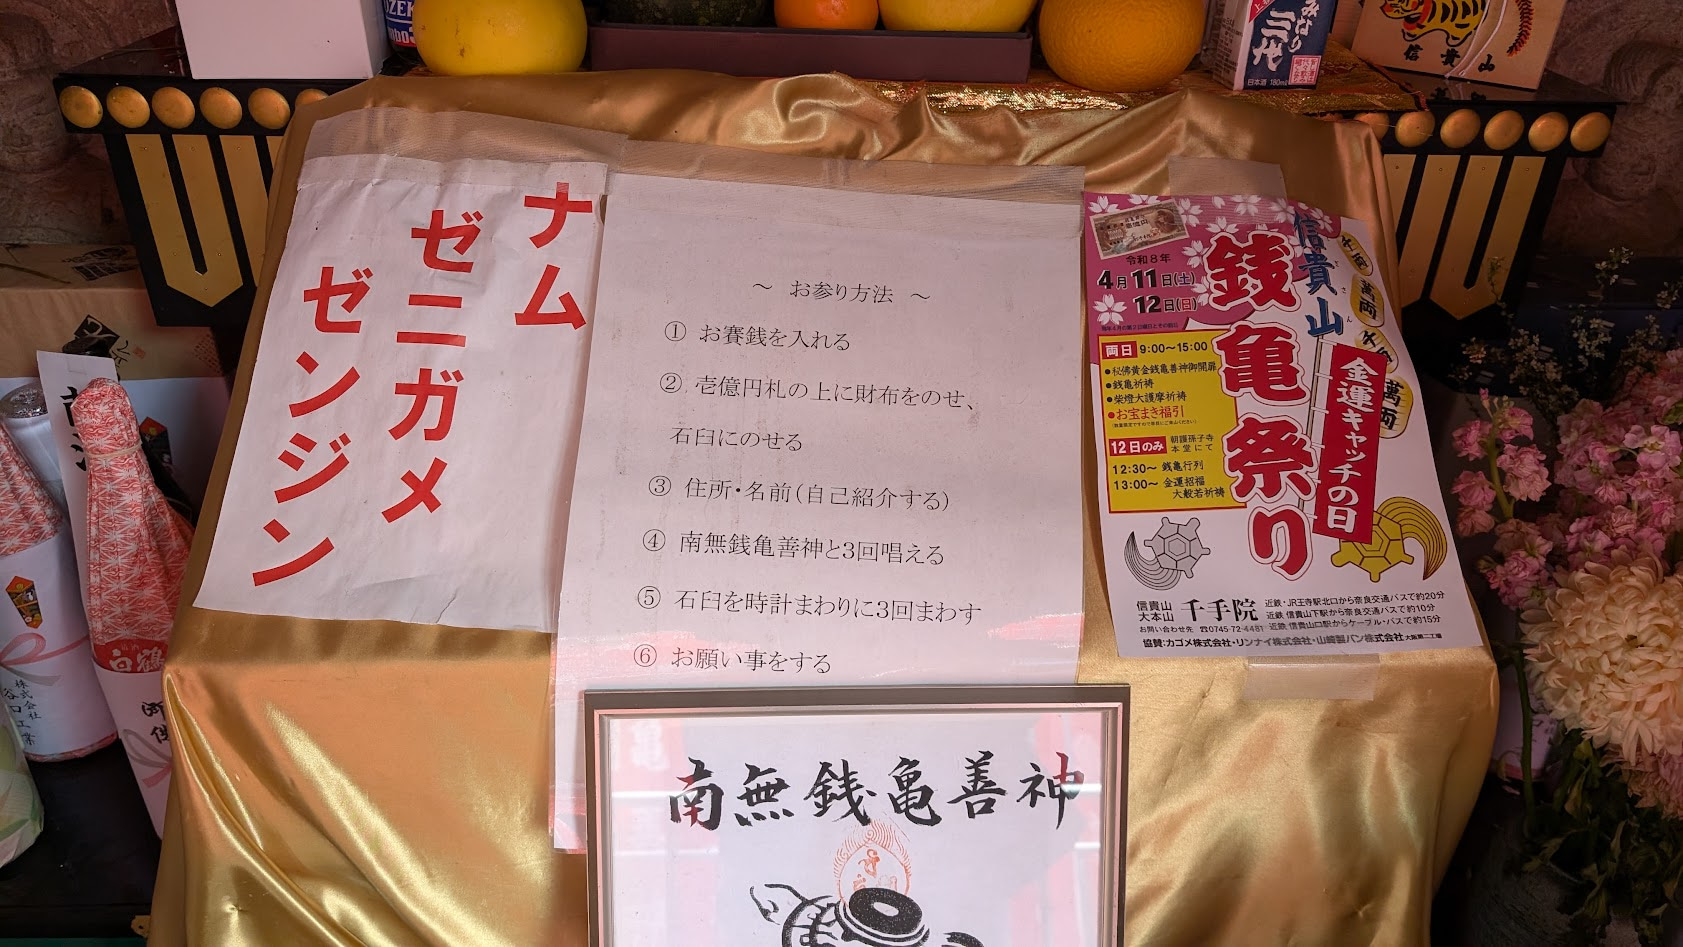 ナム
ゼニガメ
ゼンジン
～ お参り方法 ～
① お賽銭を入れる
② 壱億円札の上に財布をのせ、
石臼にのせる
③ 住所・名前（自己紹介する）
④ 南無銭亀善神と3回唱える
⑤ 石臼を時計まわりに3回まわす
⑥ お願い事をする
南無銭亀善神
信貴山
銭亀祭り
令和8年
4月11日(土)
12日(日)
毎年4月の第2日曜日とその前日
両日 9:00〜15:00
●秘佛黄金銭亀善神御開扉
●銭亀祈祷
●柴燈大護摩祈祷
●お宝まき福引
12日のみ 朝護孫子寺
本堂にて
12:30〜 銭亀行列
13:00〜 金運招福
大般若祈祷
金運キャッチの日
信貴山
大本山 千手院
近鉄・JR王寺駅北口から奈良交通バスで約20分
近鉄 信貴山下駅から奈良交通バスで約10分
近鉄 信貴山口駅からケーブル・バスで約15分
お問い合わせ先 ☎0745-72-4481
協賛:カゴメ株式会社・リンナイ株式会社・山崎製パン株式会社 大阪第二工場
三代
日本酒 180ml
信貴山
白鶴
株式会社